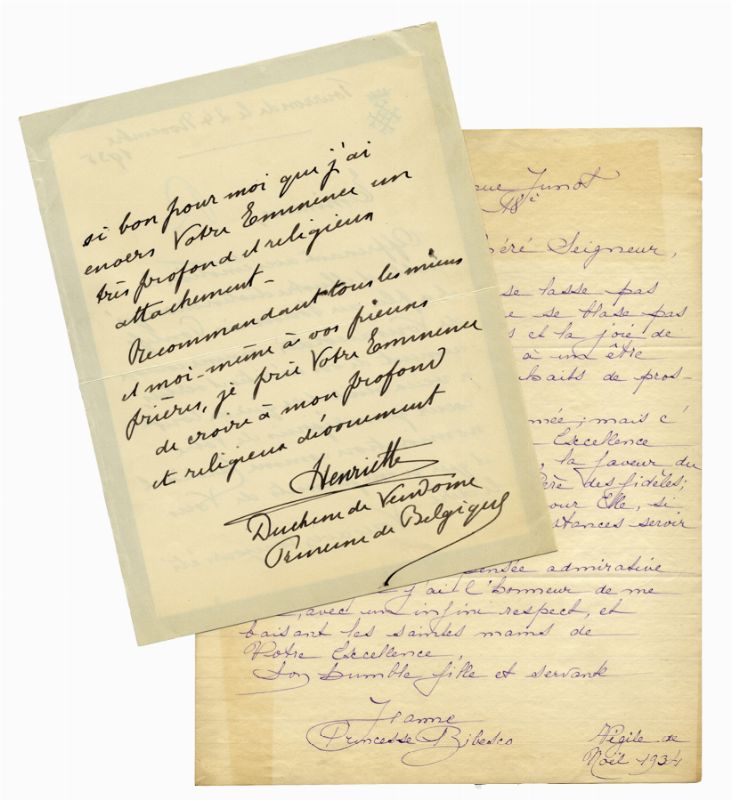 si bon pour moi que j'ai
envers Votre Eminence un
très profond et religieux
attachement -
Recommandant tous les miens
et moi-même à vos pieuses
prières, je prie Votre Eminence
de croire à mon profond
et religieux dévouement
Henriette
Duchesse de Vendome
Princesse de Belgique
rue Junot
éré Seigneur,
se lasse pas
e se blase pas
s et la joie de
à un être
haits de pros-
mée; mais c'
Excellence
, la faveur du
Père des fidèles;
our Elle, si
stances servir
ensée admirative
j'ai l'honneur de me
, avec un infini respect, et
baisant les saintes mains de
Votre Excellence,
Son humble fille et servante
Jeanne
Princesse Bibesco
Vigile de
Noël 1934